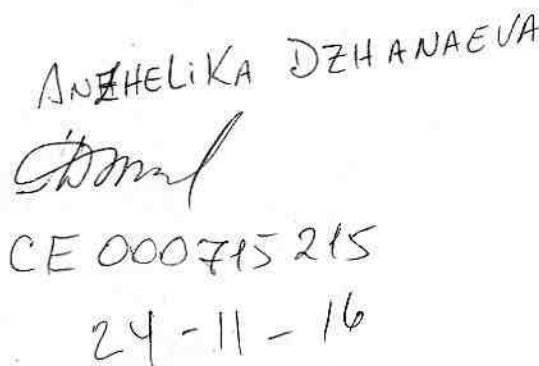 ANZHELIKA DZHANAEVA
CE 000715215
24-11-16